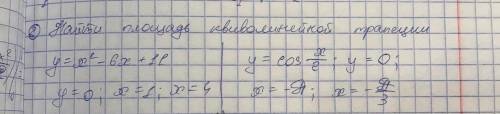 ② Найти площадь криволинейной трапеции
y = x² - 6x + 11 | y = cos x/2 ; y = 0 ;
y = 0 ; x = 1 ; x = 4 | x = -π ; x = -π/3